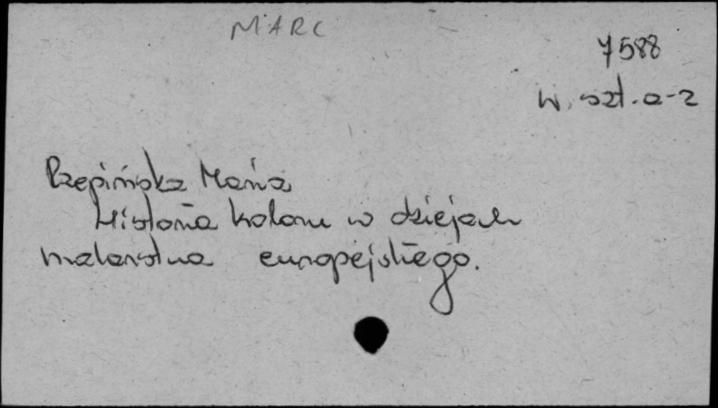 MARC
7588
W. szt. a-z
Rzepińska Maria
Historia koloru w dziejach
malarstwa europejskiego.